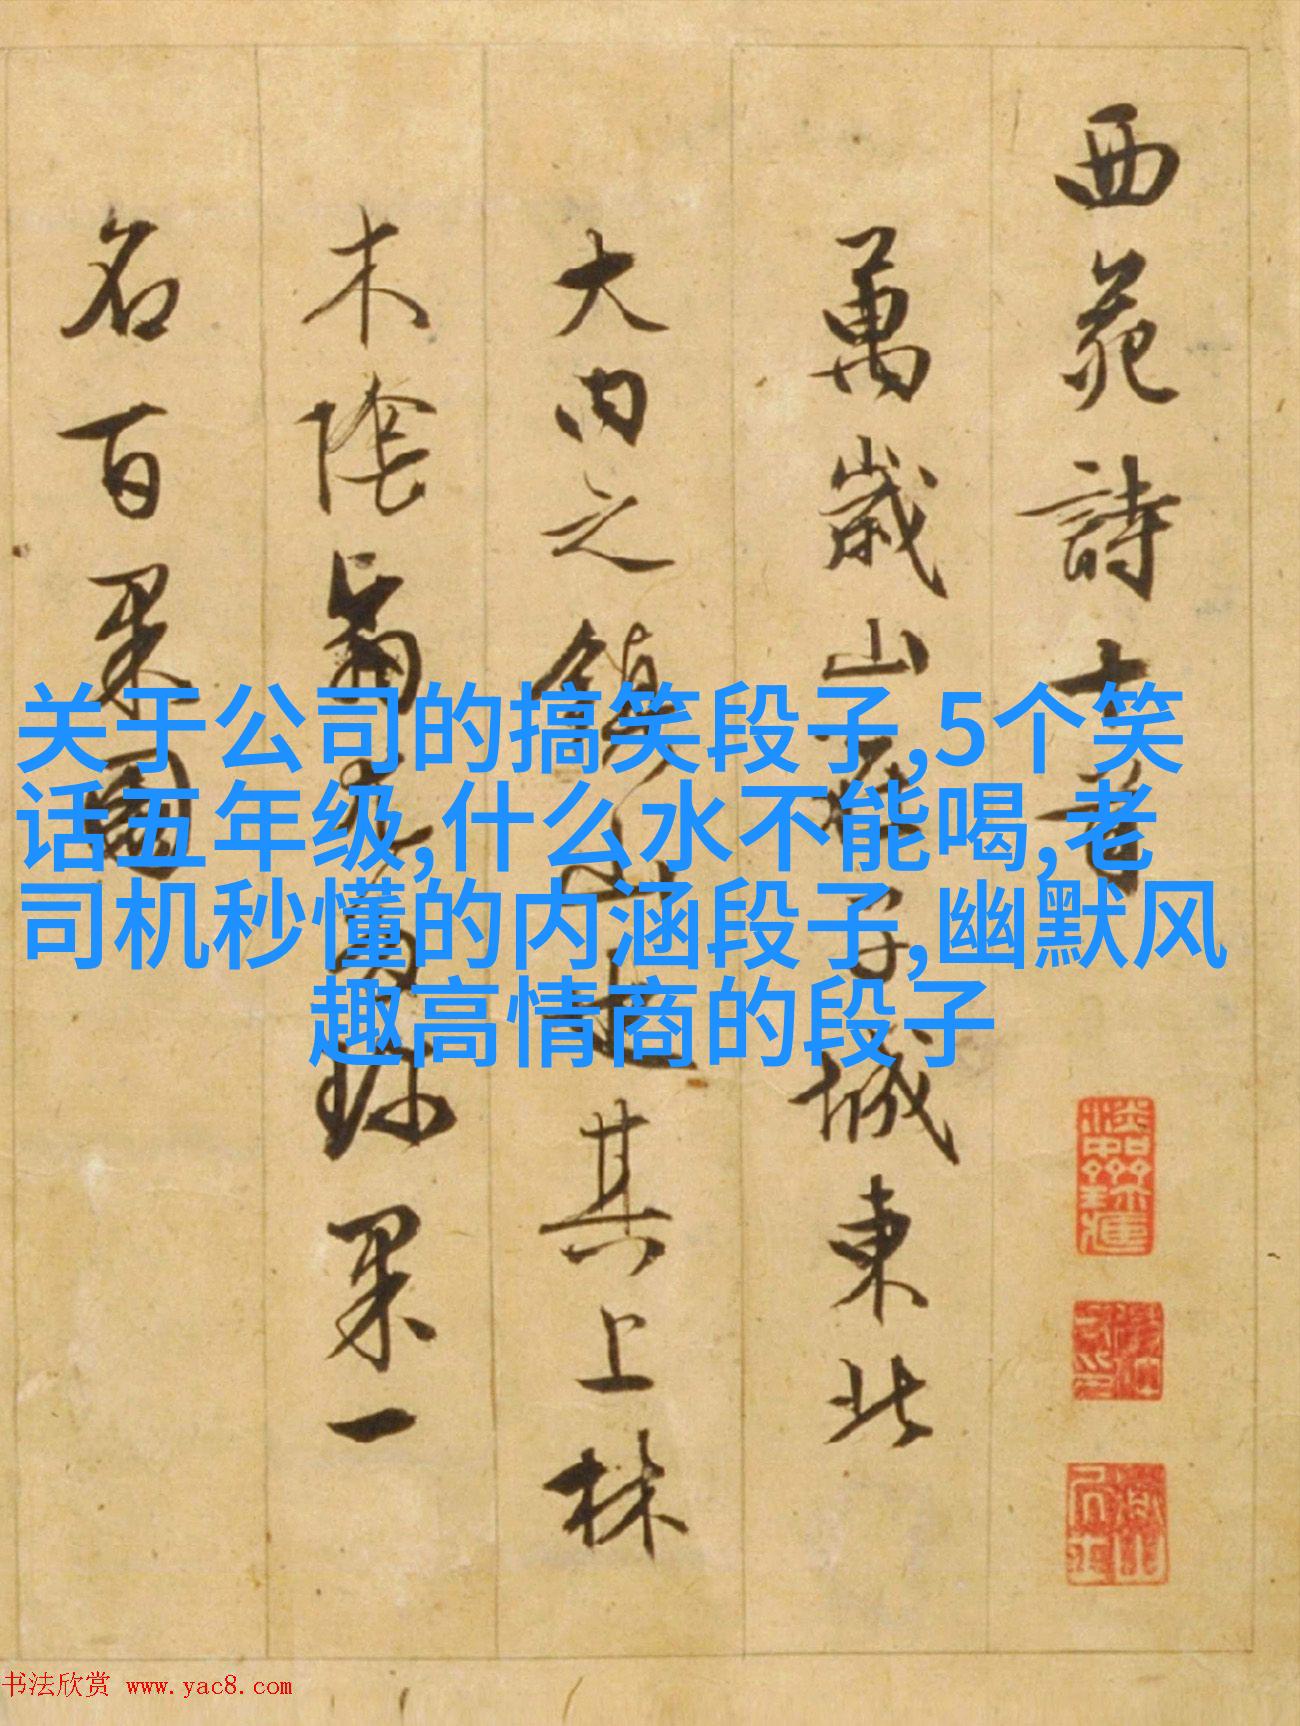 西苑詩十首
萬歲山在子城東北
大内之鎮山也其上林
木陰翳尤多珍果一
名百果園
关于公司的搞笑段子,5个笑
话五年级,什么水不能喝,老
司机秒懂的内涵段子,幽默风
趣高情商的段子
书法欣赏 www.yac8.com